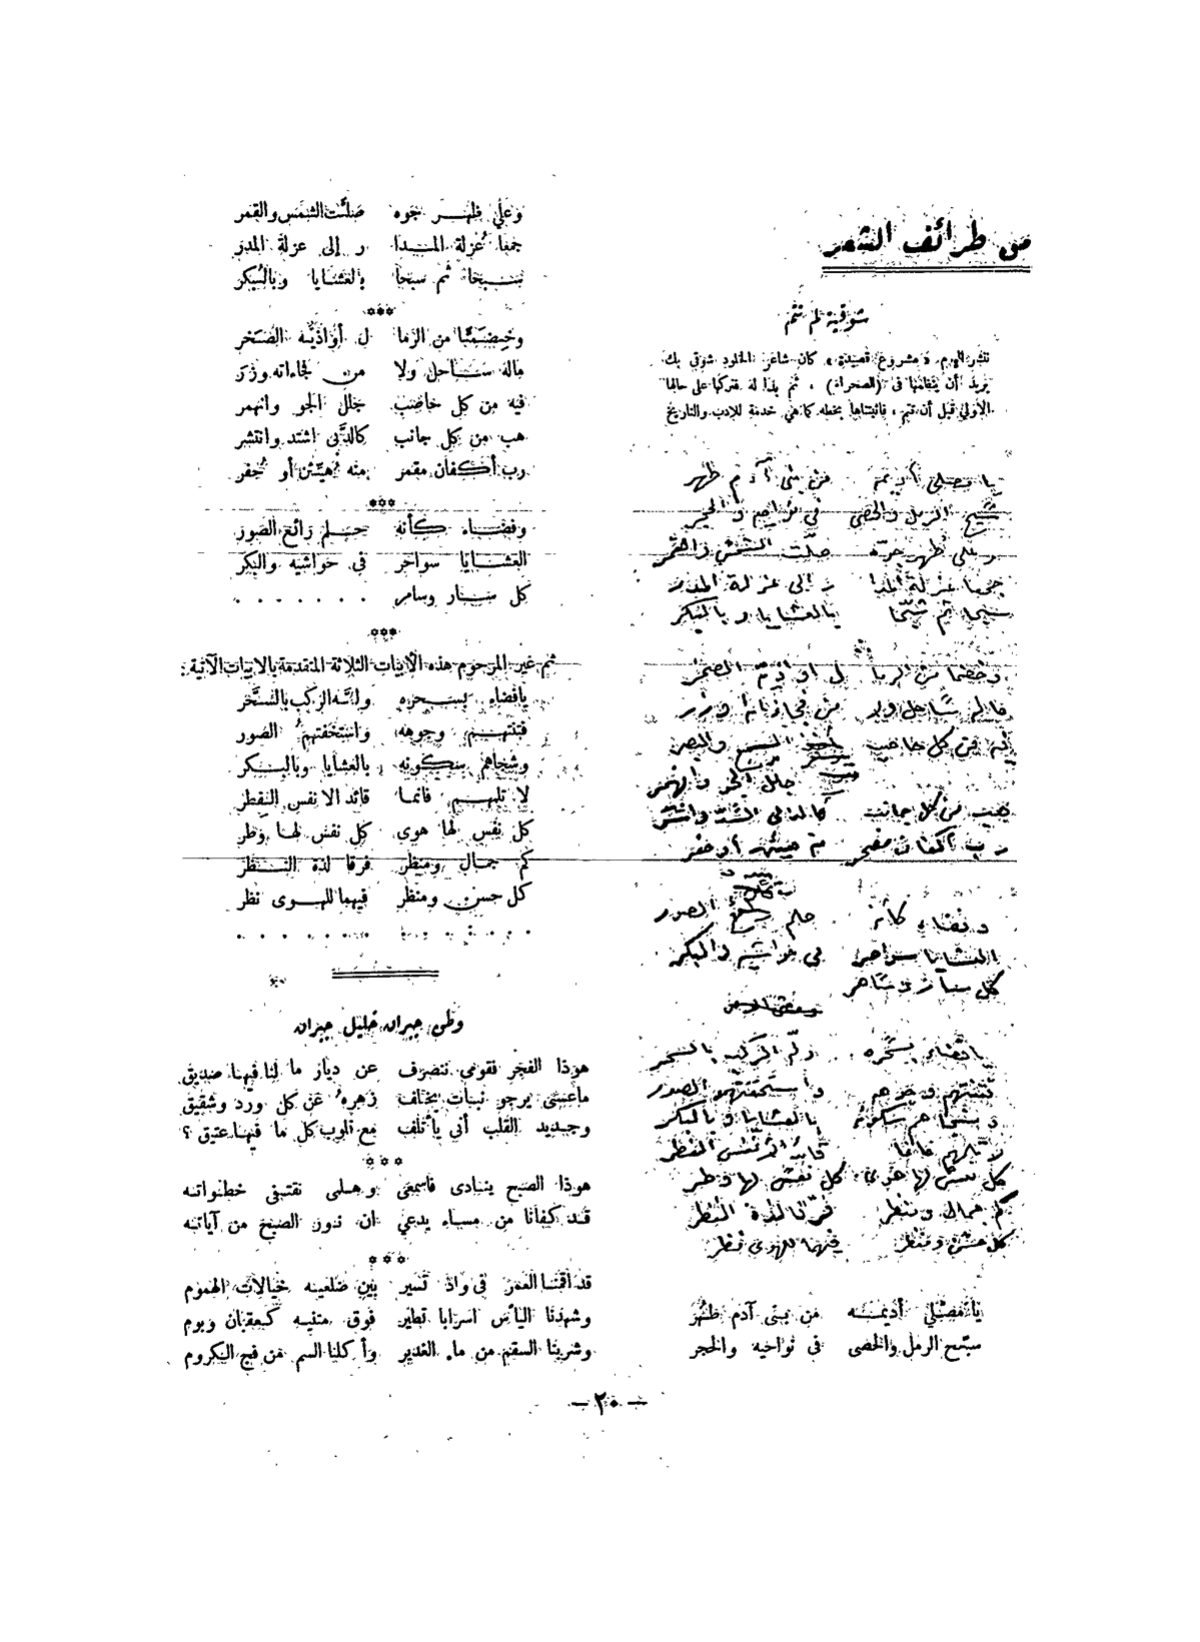 من طرائف الشعر
شوقية لم تتم
ننشر اليوم « مشروع قصيدة » كان شاعر الخلود شوقي بك
يريد أن ينظمها في (الصحراء) ، ثم بدا له فتركها على حالها
الأولى قبل أن تتم ، فاثبتناها بخطه كما هي خدمة للادب والتاريخ
يا مصلى أديمه من بنى آدم طهر
سبّح الرمل والحصى في نواحيه والحجر
وعلى ظهر جوّه صلّت الشمس والقمر
جمعا عزلة المدا ر الى عزلة المدر
سبحا ثم سبّحا بالعشايا و بالبكر
وخضما من الرما ل أواذيّه الصخر
ماله ساحل ولا من فجاءاته وزر
فيه من كل حاصب
جلل الجو وانهمر
هب من كل جانب كالدبى اشتد وانتشر
رب أكفان مقمر منه هيئن أو حفر
وفضاء كأنه حلم رائع الصور
العشايا سواحر في حواشيه والبكر
كل سار وسامر
يا فضاء بسحره ولّه الركب بالسحر
فتنتهم وجوهه واستخفتهم الصور
وشجاهم سكونه بالعشايا وبالبكر
لا تلمهم فانما قائد الانفس الفطر
كل نفس لها هوى كل نفس لها وطر
كم جمال ومنظر فرقا لذة النظر
كل حسن ومنظر فيهما للهوى نظر
يا مصلى أديمه من بنى آدم طهر
سبّح الرمل والحصى في نواحيه والحجر
وعلى ظهر جوه صلّت الشمس والقمر
جمعا عزلة المدا ر إلى عزلة المدر
سبحا ثم سبحا بالعشايا وبالبكر
***
وخضمّا من الرما ل أواذيّه الصخر
ماله ساحل ولا من فجاءاته وزر
فيه من كل حاصب جلل الجو وانهمر
هب من كل جانب كالدَّبى اشتد وانتشر
رب أكفان مقمر منه هيّئن أو حُفر
***
وفضاء كأنه حلم رائع الصور
العشايا سواحر في حواشيه والبكر
كل سار وسامر . . . . . . .
***
ثم غير المرحوم هذه الابيات الثلاثة المتقدمة بالابيات الآتية :
يا فضاء بسحره ولّه الركب بالسحر
فتنتهم وجوهه واستخفتهم الصور
وشجاهم سكونه بالعشايا وبالبكر
لا تلمهم فانما قائد الانفس الفطر
كل نفس لها هوى كل نفس لها وطر
كم جمال ومنظر فرقا لذة النظر
كل حسن ومنظر فيهما للهوى نظر
. . . . . . . . . . . .
وطن جبران خليل جبران
هوذا الفجر فقومى ننصرف عن ديار ما لنا فيها صديق
ما عسى يرجو نبات يختلف زهره عن كل ورد وشقيق
وجديد القلب أنى يأتلف مع قلوب كل ما فيها عتيق ؟
***
هوذا الصبح ينادى فاسمعى وهلمى نقتفى خطواته
قد كفانا من مساء يدعي ان نور الصبح من آياته
***
قد أقمنا العمر في واد تسير بين ضلعيه خيالات الهموم
وشهدنا اليأس اسرابا تطير فوق متنيه كعقبان وبوم
وشربنا السقم من ماء الغدير وأكلنا السم من فج الكروم
— ٢٠ —